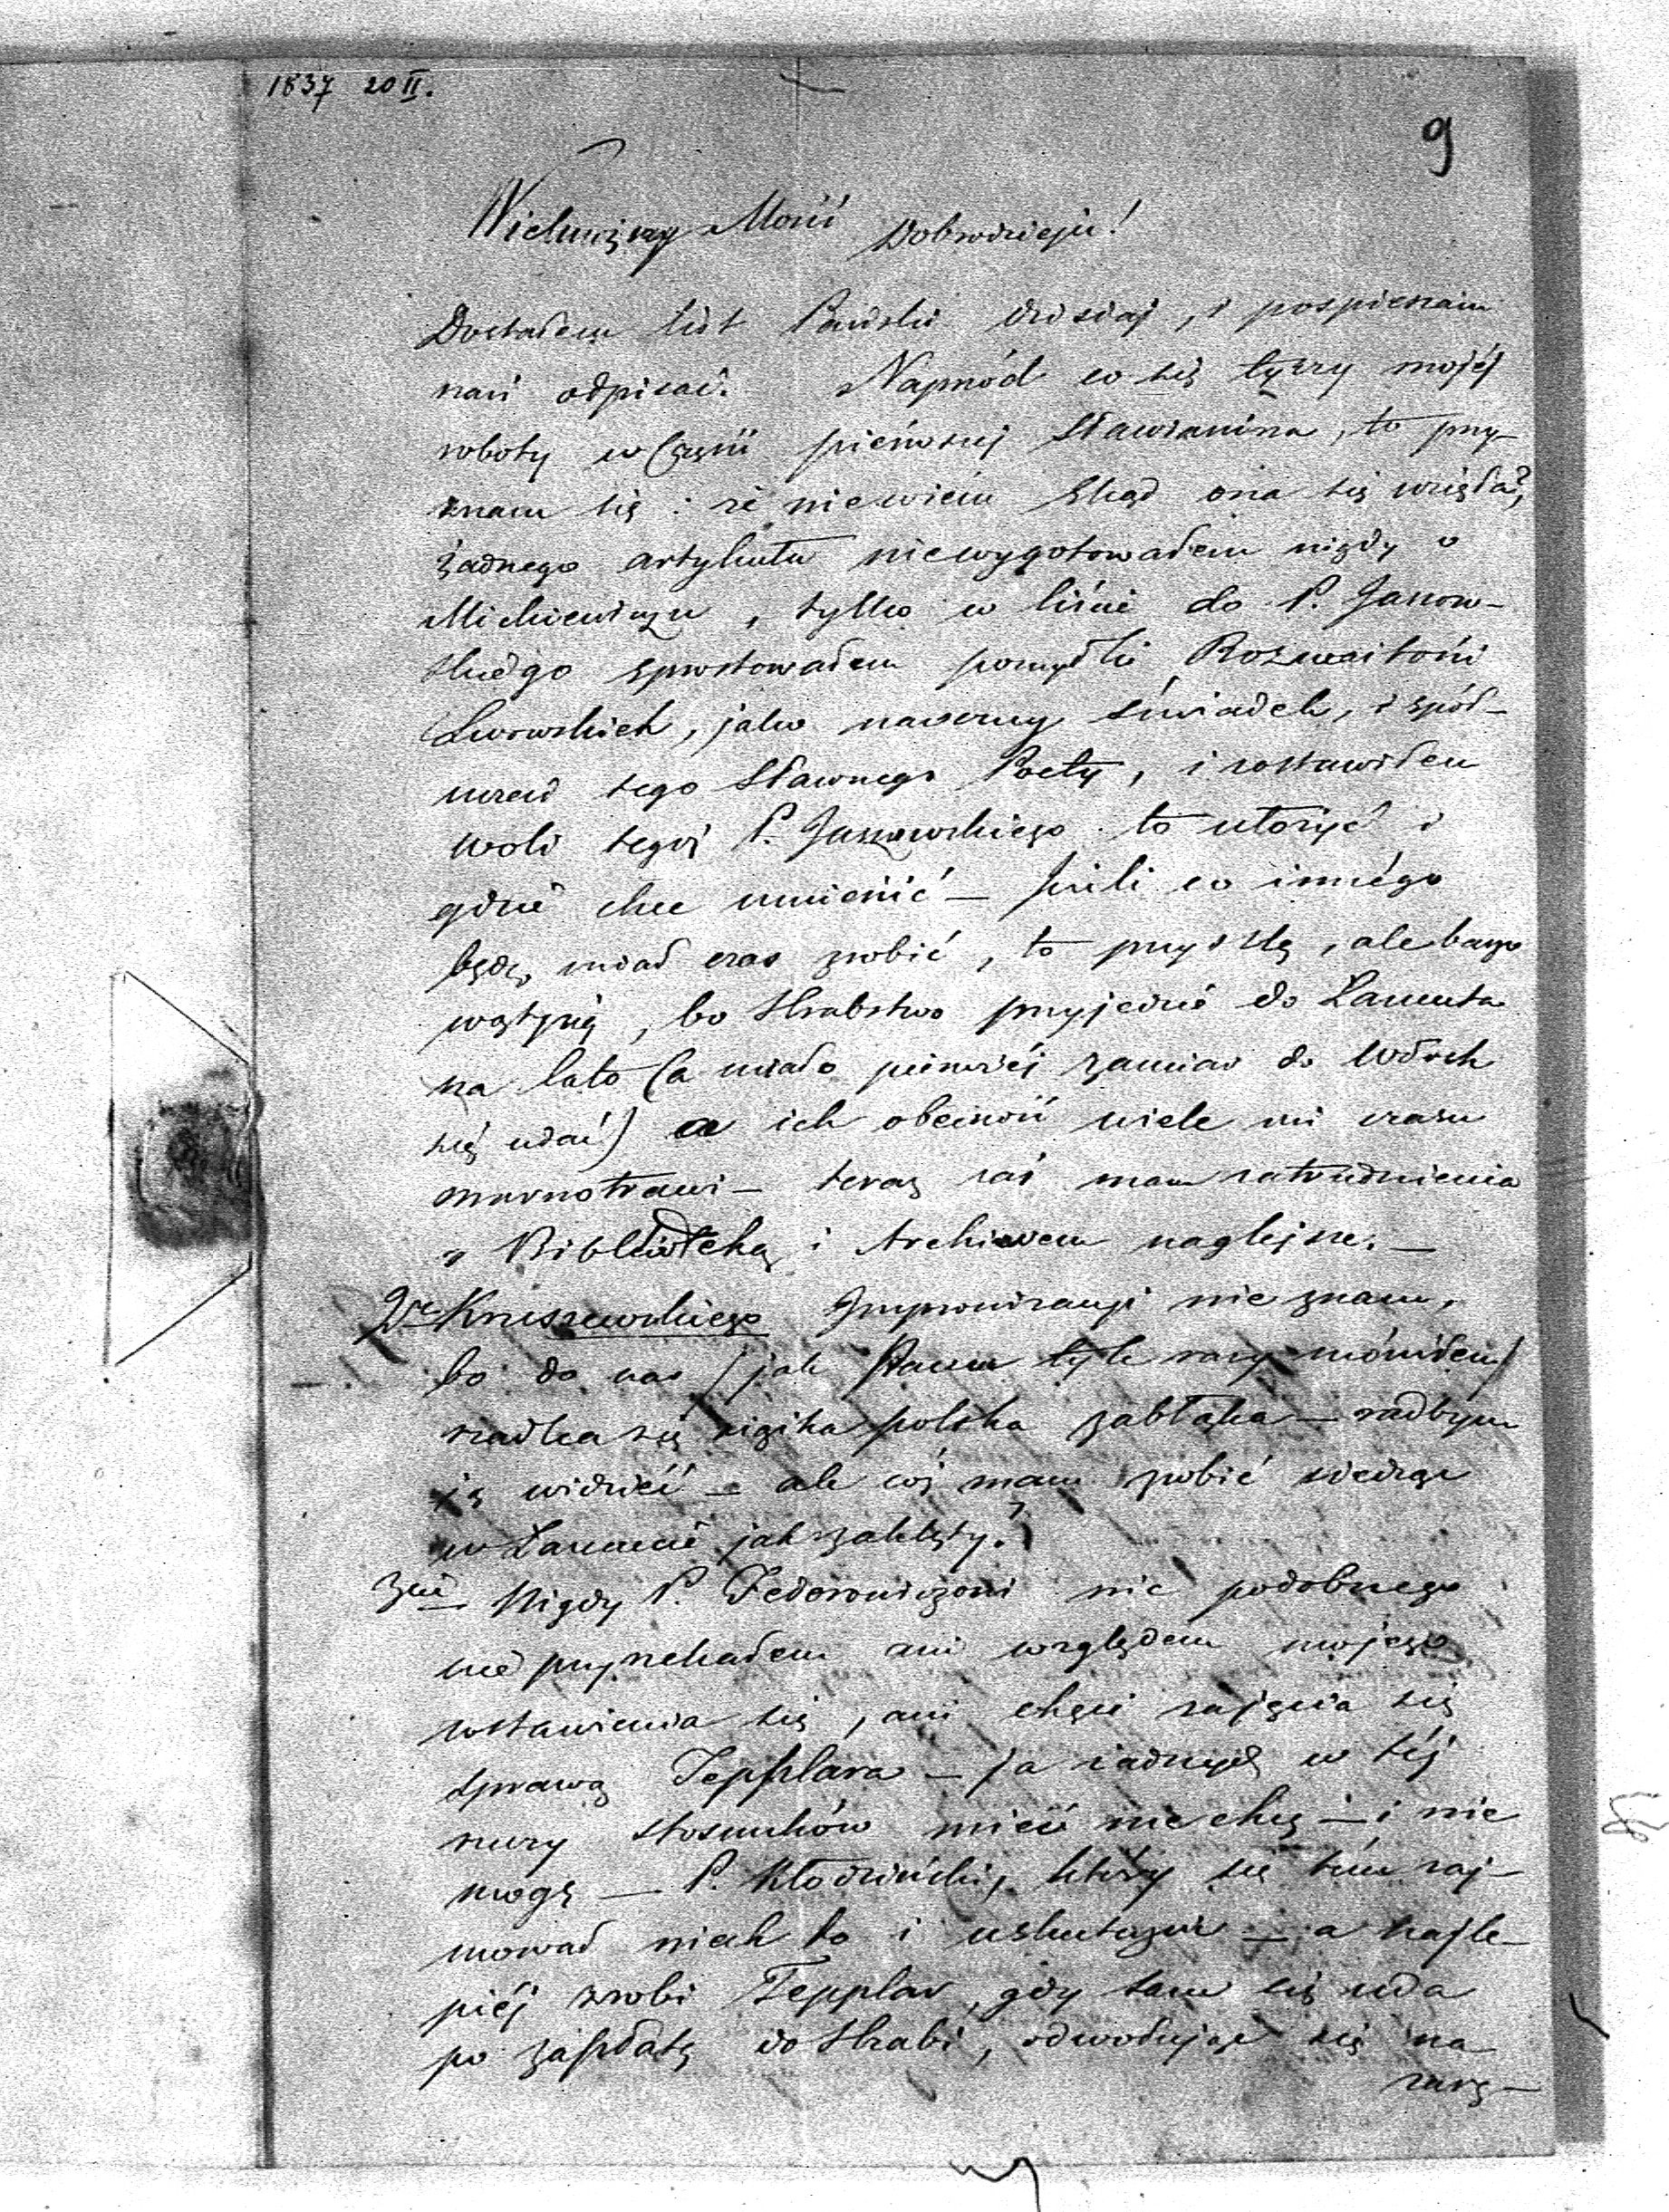 1837 20 II.
9
Wielmożny Mości Dobrodzieju!
Dostałem list Pański dzisiaj, i pospieszam
nań odpisać. Naprzód co się tyczy mojéj
roboty w Części piérwszej Sławianina, to przy-
znam się: że niewiem skąd ona się wzięła?,
żadnego artykułu niewygotowałem nigdy o
Mickiewiczu, tylko w liście do P. Jaszow-
skiego sprostowałem pomyłki Rozmaitości
Lwowskich, jako naoczny świadek, i spół-
uczeń tego Sławnego Poety, i zostawiłem
woli tegoż P. Jaszowskiego to ułożyć i
gdzie chce umieścić — Jeżli co innégo
będę miał czas zrobić, to przyszlę, ale bardzo
wątpię, bo Hrabstwo przyjedzie do Łańcuta
na lato (a miało pierwéj zamiar do Włoch
się udać) a ich obecność wiele mi czasu
zmarnotrawi — teraz zaś mam zatrudnienia
z Biblioteką i Archivem naglejsze. —
2re Kruszewskiego Improwizacyi nie znam,
bo do nas (jak Panu tyle razy mówiłem)
rzadka się xiążka polska zabłąka — radbym
ją widzieć — ale cóż mam zrobić siedząc
w Łańcucie jak zaklęty?
3cie Nigdy P. Fedorowiczowi nic podobnego
nie przyrzekałem ani względem mojego
wstawienia się, ani chęci zajęcia się
sprawą Tepplara — ja żadnych w téj
rzeczy stosunków mieć nie chcę — i nie
mogę — P. Kłodziński, który się tém zaj-
mował niech to i uskuteczni — a najle-
piéj zrobi Tepplar, gdy sam się uda
po zapłatę do Hrabi, odwołując się na
zarę-